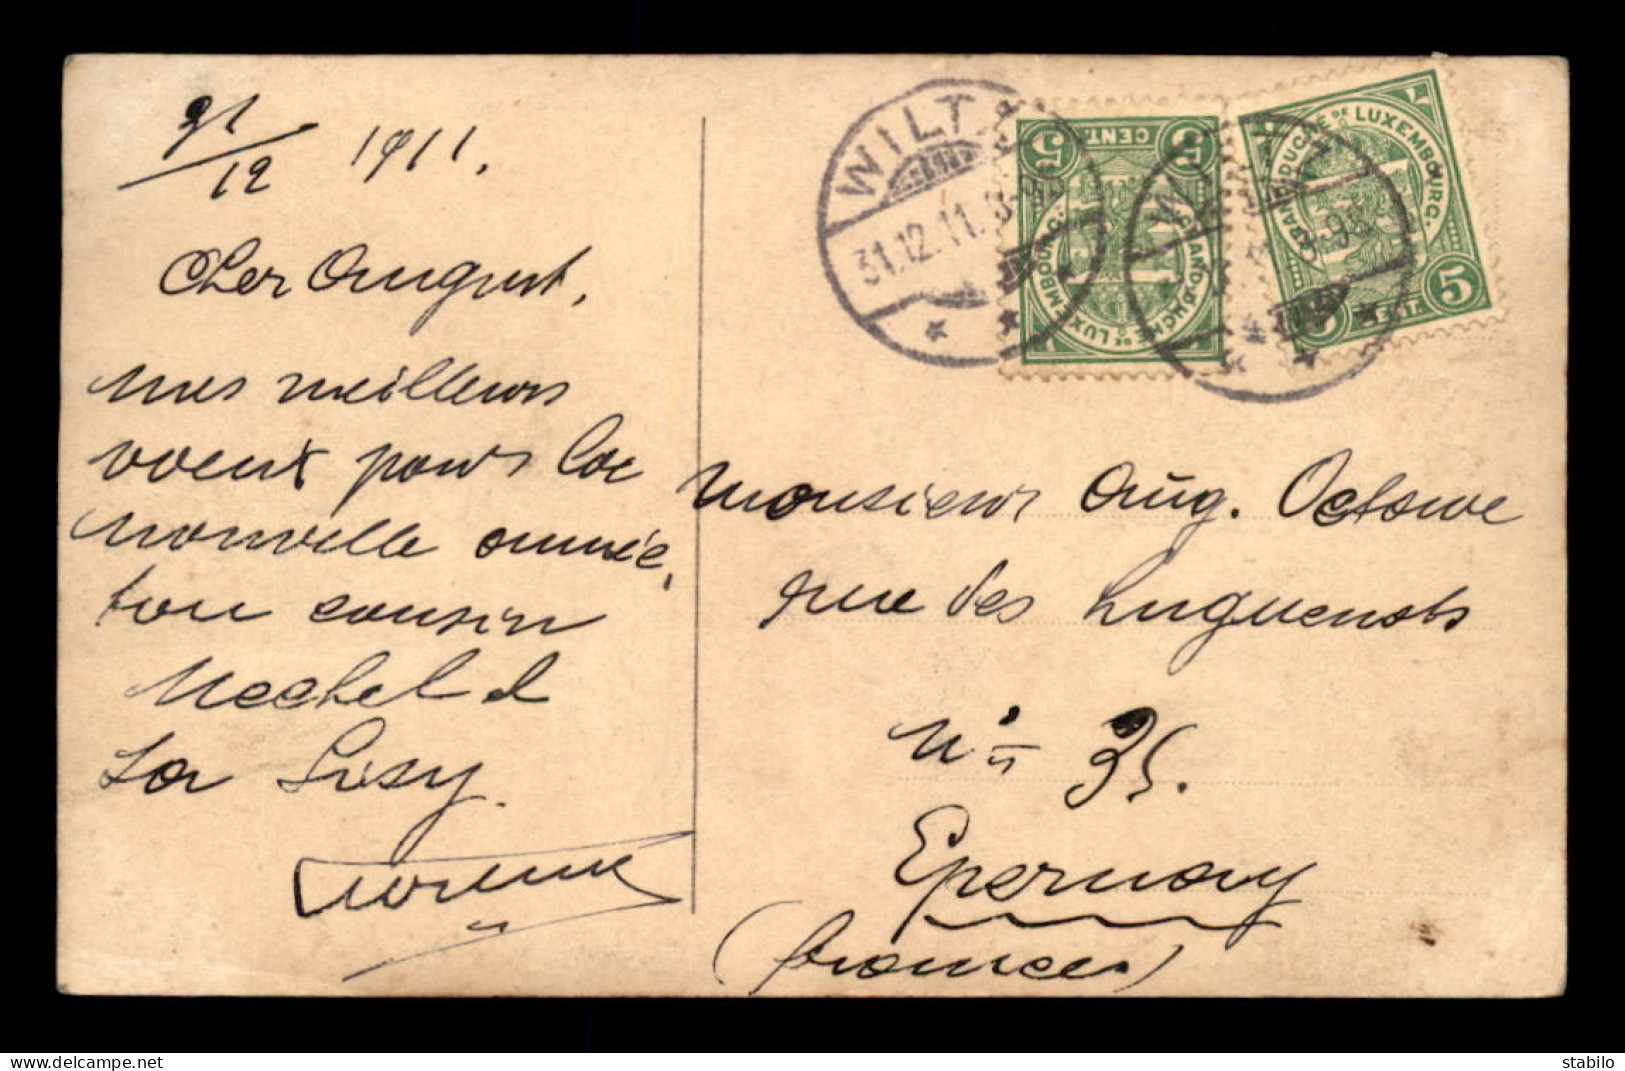 31/12 1911.
Cher August,
mes meilleurs
voeux pour la
nouvelle année,
ton cousin
Mechel &
La Lisy.
WILTZ
31.12.11.
5 CENT. 5
GRAND-DUCHÉ DE LUXEMBOURG.
WILTZ
GRAND-DUCHÉ DE LUXEMBOURG.
5 CENT. 5
Monsieur Aug. Octave
rue des Huguenots
No 35.
Epernay
(France)
stabilo